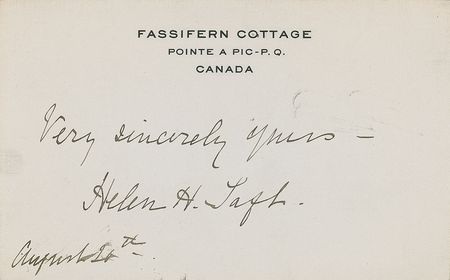 FASSIFERN COTTAGE
POINTE A PIC-P.Q.
CANADA
Very sincerely yours —
Helen H. Taft.
August 20th.